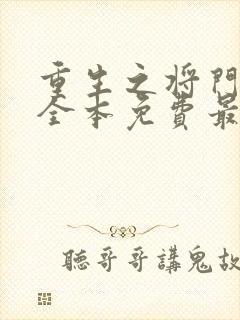 重生之將門
全本免費最
聽哥哥講鬼故